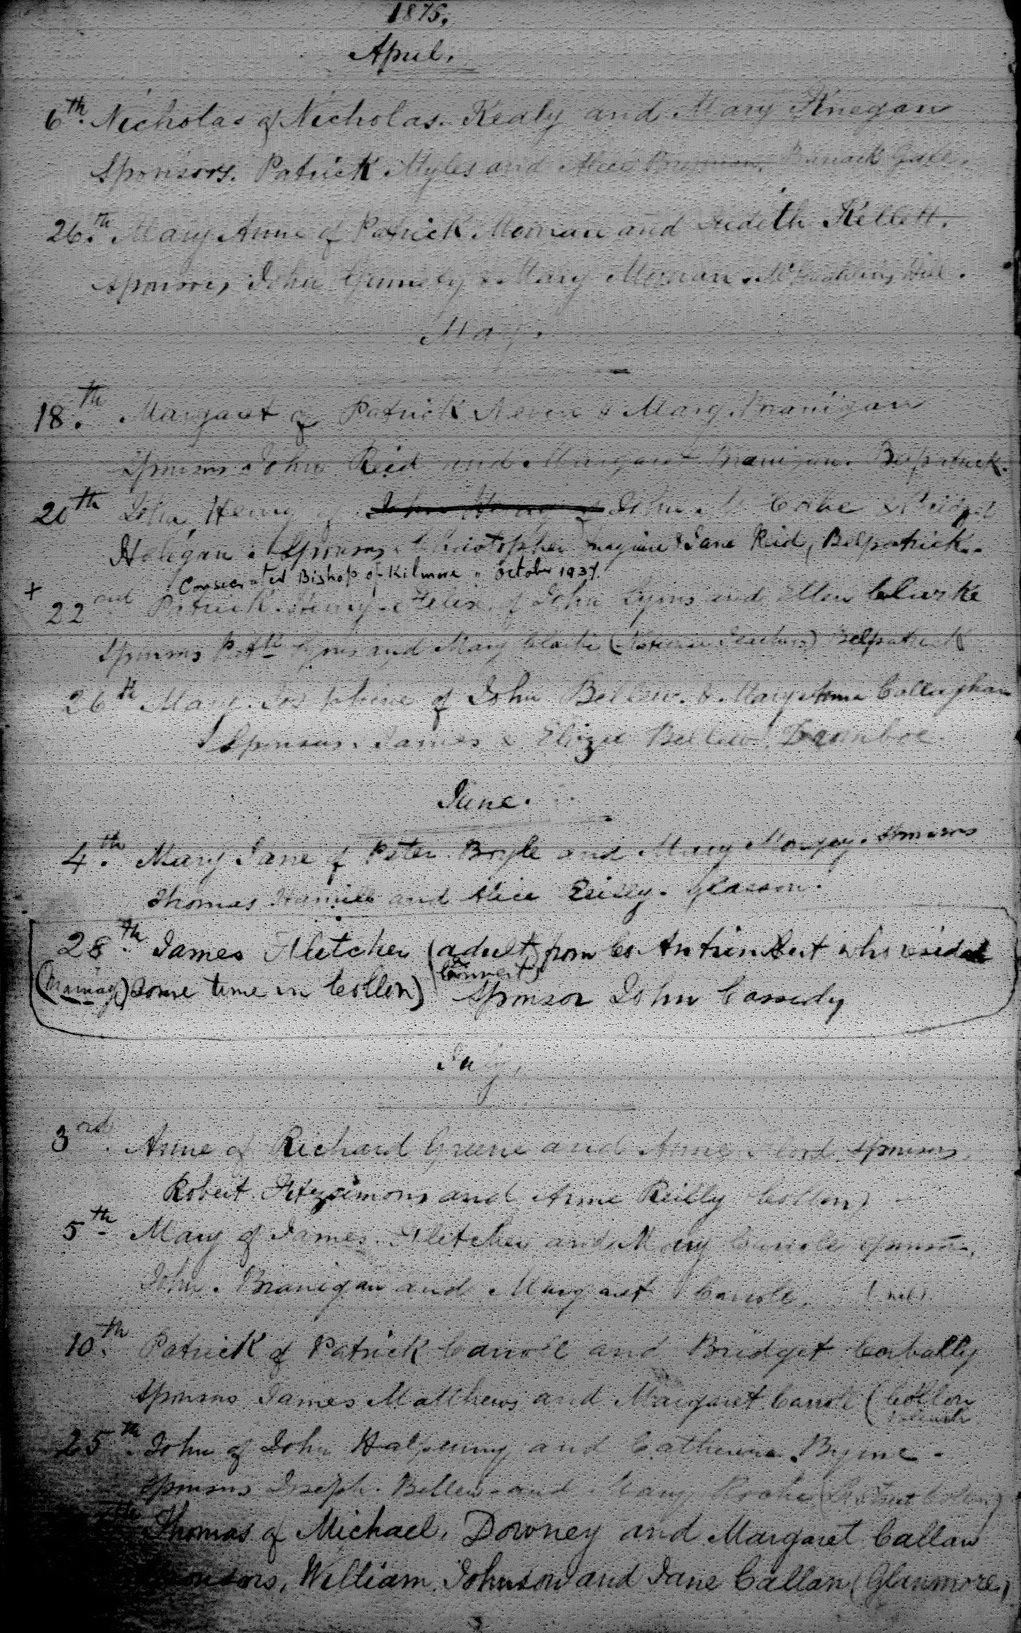 1875.
April.
6th. Nicholas of Nicholas Kealy and Mary Finegan
Sponsors. Patrick Myles and Alice
26th. Mary Anne of Patrick and Kellett.
Sponsors John & Mary Hill.
May.
18th. Margaret of Patrick & Mary Branigan
Sponsors John Reid and Margaret Branigan. Belpatrick.
20th John Henry of John Henry of John Mc Cabe & Bridget
Halegan. Sponsors Christopher maguire & Jane Reid, Belpatrick.
Consecrated Bishop of Kilmore. October 1937.
+ 22nd Patrick Henry Felix of John Lyons and Ellen Clarke
Sponsors Patk Lyons and Mary Clarke (National Teachers) Belpatrick
26th Mary Josephine of John Bellew & Mary Anne Callaghan
Sponsors. James & Eliza Bellew.
June.
4th. Mary Jane of Peter Boyle and Mary Sponsors
Thomas and Alice Reilly.
28th. James Fletcher (adult from Co. Antrim but who resided
(Convert)
(Marriage) some time in Collon) Sponsor John Cassidy
July.
3rd. Anne of Richard Greene and Anne Sponsors,
Robert Fitzsimons and Anne Reilly Collon)
5th. Mary of James Fletcher and Mary Carroll sponsors,
John Branigan and Margaret Carroll.
10th. Patrick of Patrick Carroll and Bridget Corbally
Sponsors James Matthews and Margaret Carroll (Collon
25th. John of John Halpenny and Catherine Byrne.
Sponsors Joseph Bellew and Mary Roche Collon)
Thomas of Michael Downey and Margaret Callan
Sponsors, William Johnson and Jane Callan (Glanmore)